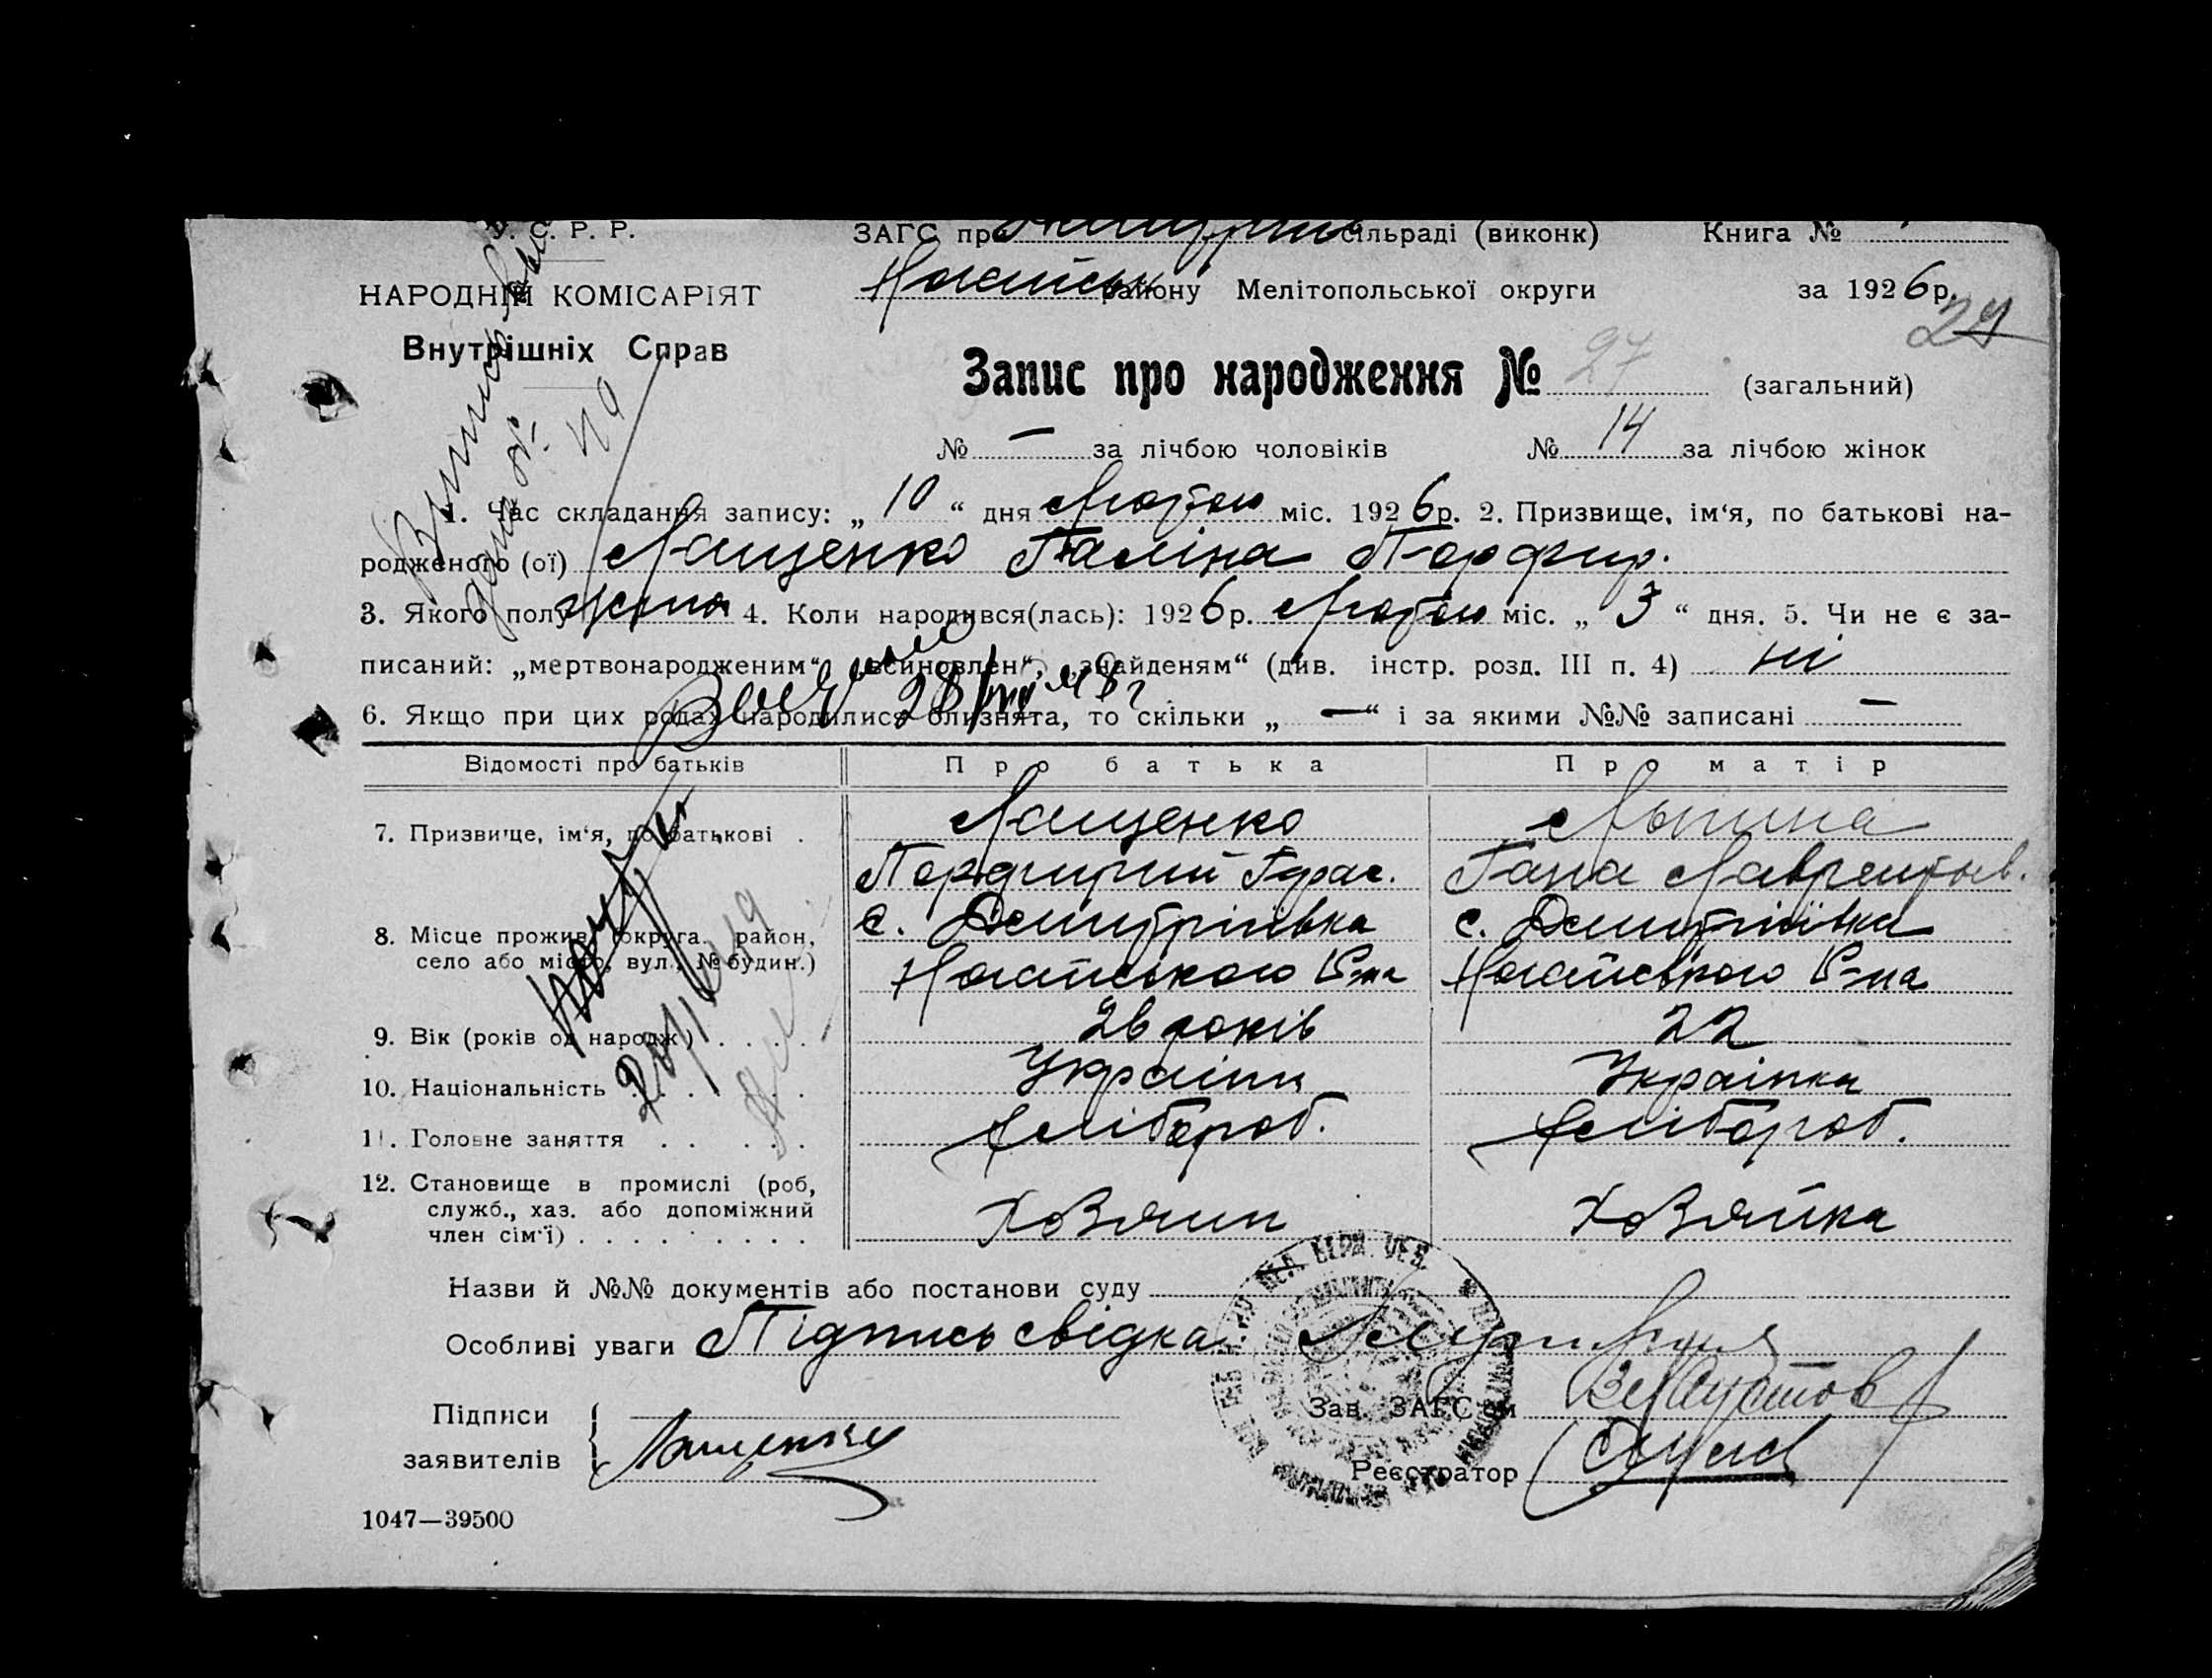 У. С. Р. Р.
НАРОДНІЙ КОМІСАРІЯТ
Внутрішніх Справ
ЗАГС при сільраді (виконк) Книга №
Ногайськ району Мелітопольської округи за 1926р.
Запис про народження № 27 (загальний)
№ — за лічбою чоловіків № 14 за лічбою жінок
1. Час складання запису: „ 10 “ дня Лютого міс. 1926р. 2. Призвище, ім‘я, по батькові на-
родженого (ої) Лащенко Галіна Порфир.
3. Якого полу жіноч 4. Коли народився(лась): 1926р. Лютого міс. „ 3 “ дня. 5. Чи не є за-
писаний: „мертвонародженим“ „всиновлен“, „знайденям“ (див. інстр. розд. III п. 4) ні
6. Якщо при цих родах народилися близнята, то скільки „ — “ і за якими №№ записані —
Відомості про батьків Про батька Про матір
7. Призвище, ім‘я, по батькові . Лащенко
Порфирий Гарас. Гана Лаврентьев.
8. Місце прожив. (округа, район, с. Дмитріівка с. Дмитріівка
село або місто, вул., № будин.) Ногайського Р-на Ногайського Р-на
9. Вік (років од народж) . . . . 26 років 22
10. Національність . . . . Українц Українка
11. Головне заняття . . . . . Хлібороб. Хлібороб.
12. Становище в промислі (роб, служб., хаз. або допоміжний член сім‘ї) . . . . . . . . . Хозяин Хозяйка
Назви й №№ документів або постанови суду
Особливі уваги Підпись свідка
Підписи заявителів Лащенко
Зав. ЗАГС‘ом
Реєстратор
1047—39500